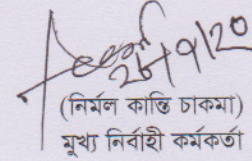 ২৮/৭/২০
(নির্মল কান্তি চাকমা)
মুখ্য নির্বাহী কর্মকর্তা